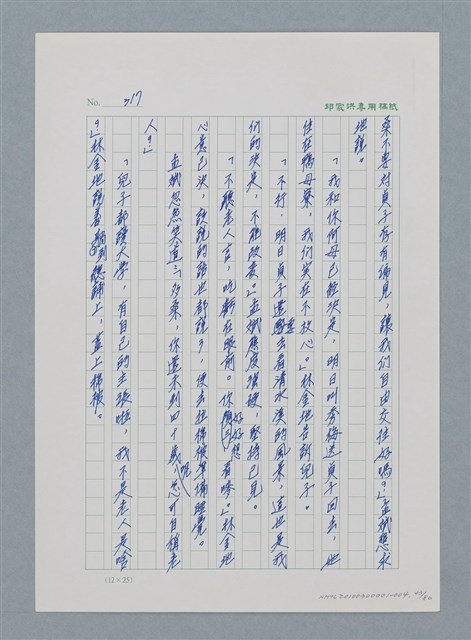 No. 317
邱家洪專用稿紙
桑不要對貞子存有偏見，讓我們自由交往好嗎？」孟斌懇求
地說。
「我和你阿母已經決定，明日叫秀梅送貞子回去，她
住在鴨母寮，我們實在不放心。」林金地告訴兒子。
「不行，明日貞子還要去看清水溪的風景，這也是我
們的決定，不能改變。」孟斌態度強硬，堅持己見。
「不聽老人言，吃虧在眼前。你好好想看嘜。」林金地
心意已決，該說的話也都說了，便去拉棉被準備睡覺。
孟斌忽然笑道：多桑，你還不到四十歲呢，怎可自稱老
人？」
「兒子都讀大學，有自己的主張啦，我不是老人是啥
？」林金地說着躺到總鋪上，蓋上棉被。
(12×25)